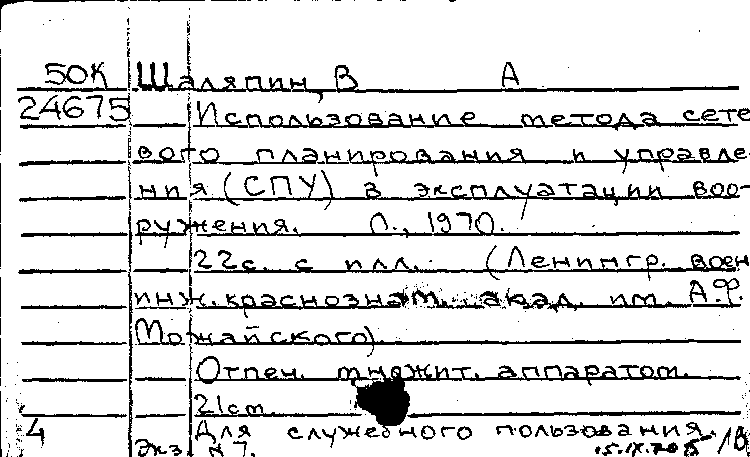 50К Шаляпин, В А
24675 Использование метода сете
вого планирования и управле
ния (СПУ) в эксплуатации воо-
ружения. Л., 1970.
22с. с илл. (Ленингр. воен
инж. краснознам. акад. им. А.Ф.
Можайского).
Отпеч. множит. аппаратом.
21см.
Для служебного пользования.
4 Экз. №7.